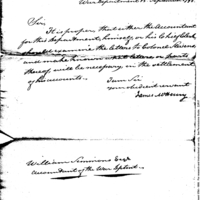 War Department 10 September 179
Sir
It is proper that either the Accountant
for this department, himself or his Chief Clerk
should examine the letters to Colonel
and make
thereof as may be necessary in the settlement
of his accounts.
I am Sir
your obedient servant
James McHenry
William Simmons Esqr
accountant of the War Depart.